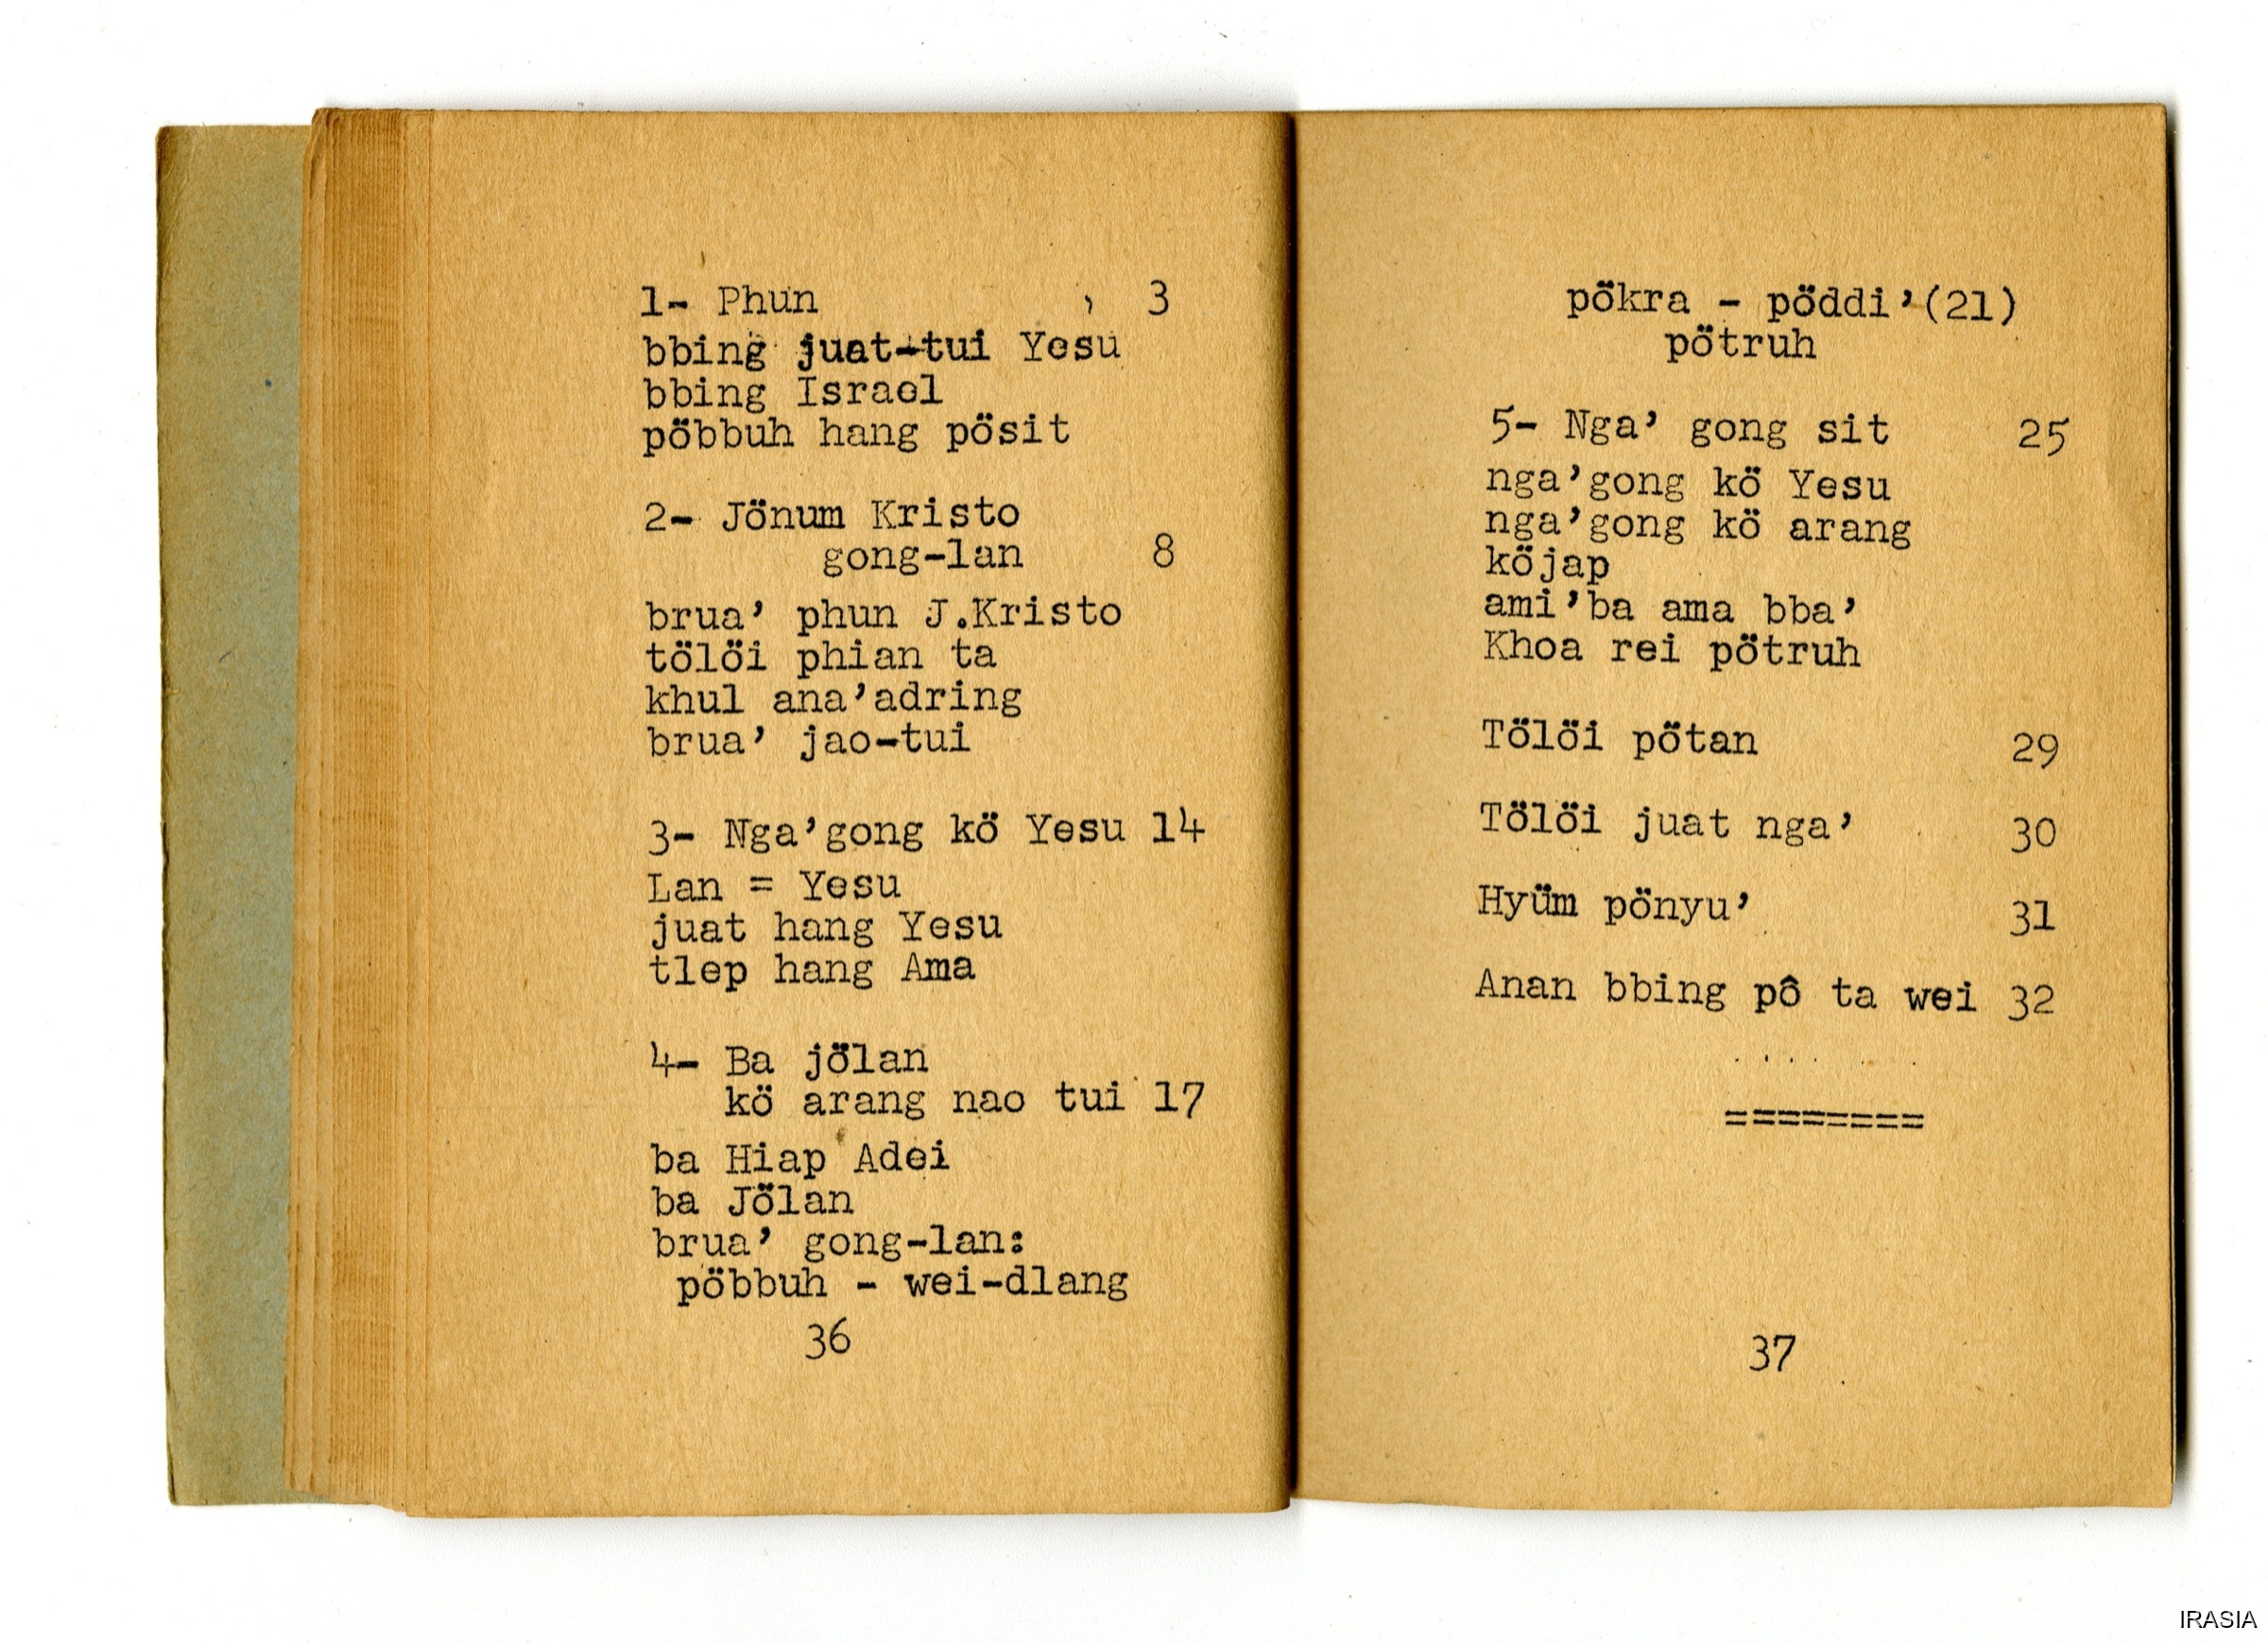 1- Phun 3
bbing juat-tui Yesu
bbing Israel
pöbbuh hang pösit
2- Jönum Kristo
gong-lan 8
brua’ phun J.Kristo
tölöi phian ta
khul ana’adring
brua’ jao-tui
3- Nga’gong kö Yesu 14
Lan = Yesu
juat hang Yesu
tlep hang Ama
4- Ba jölan
kö arang nao tui 17
ba Hiap Adei
ba Jölan
brua’ gong-lan:
pöbbuh - wei-dlang
36
pökra - pöddi’(21)
pötruh
5- Nga’ gong sit 25
nga’gong kö Yesu
nga’gong kö arang
köjap
ami’ba ama bba’
Khoa rei pötruh
Tölöi pötan 29
Tölöi juat nga’ 30
Hyüm pönyu’ 31
Anan bbing pô ta wei 32
========
37
IRASIA